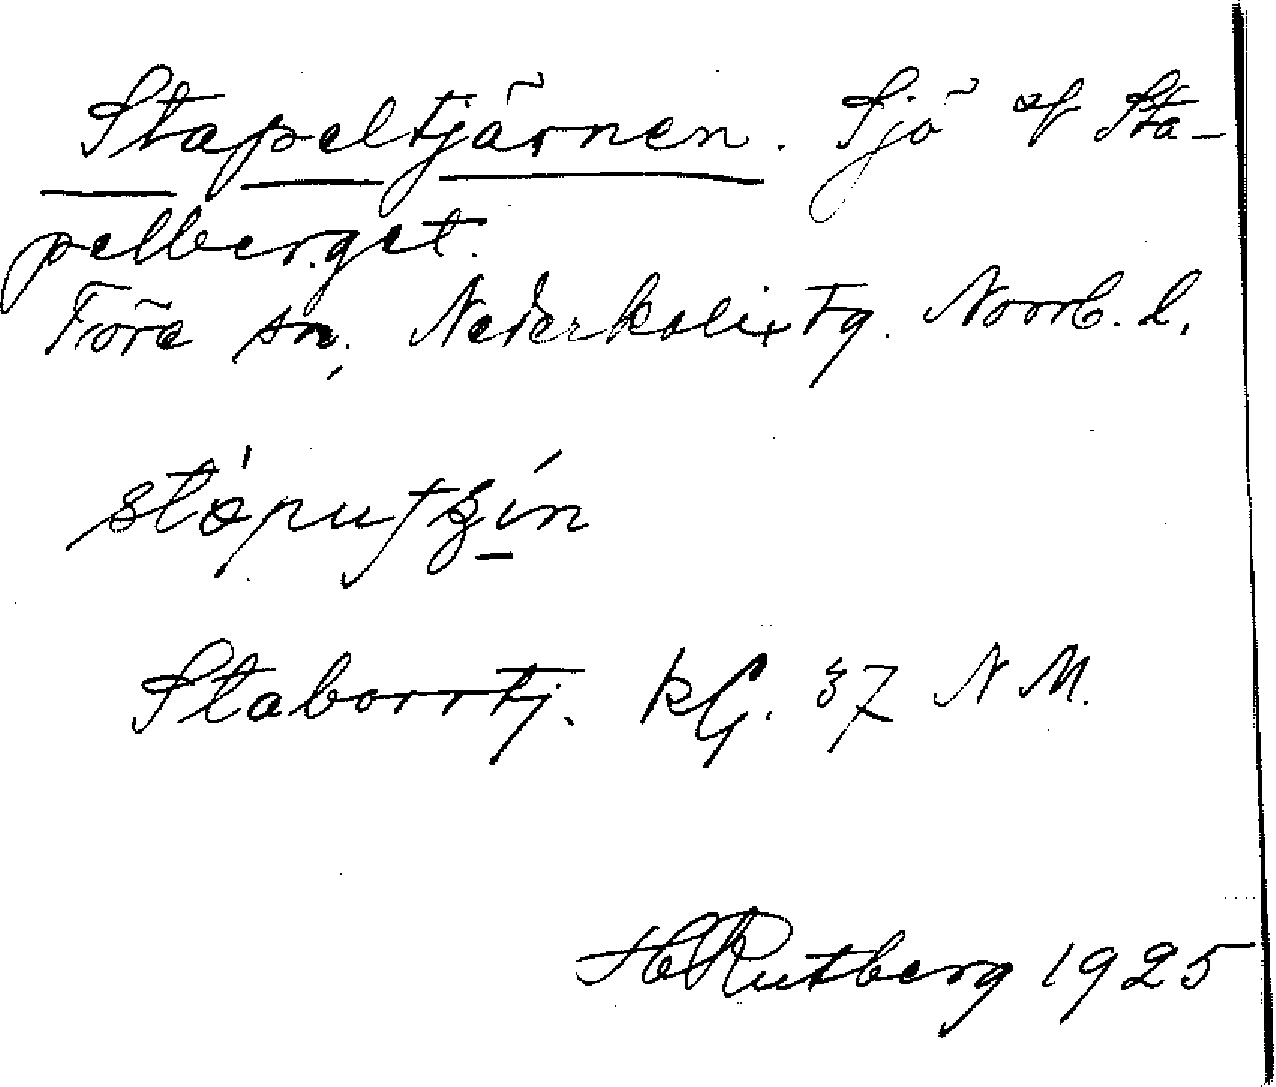 Stapeltjärnen. Sjö af Sta-
pelberget.
Töre sn, Nederkalix tg. Norrb. l.
Staborrtj. kG. 37 N M.
H Rutberg 1925